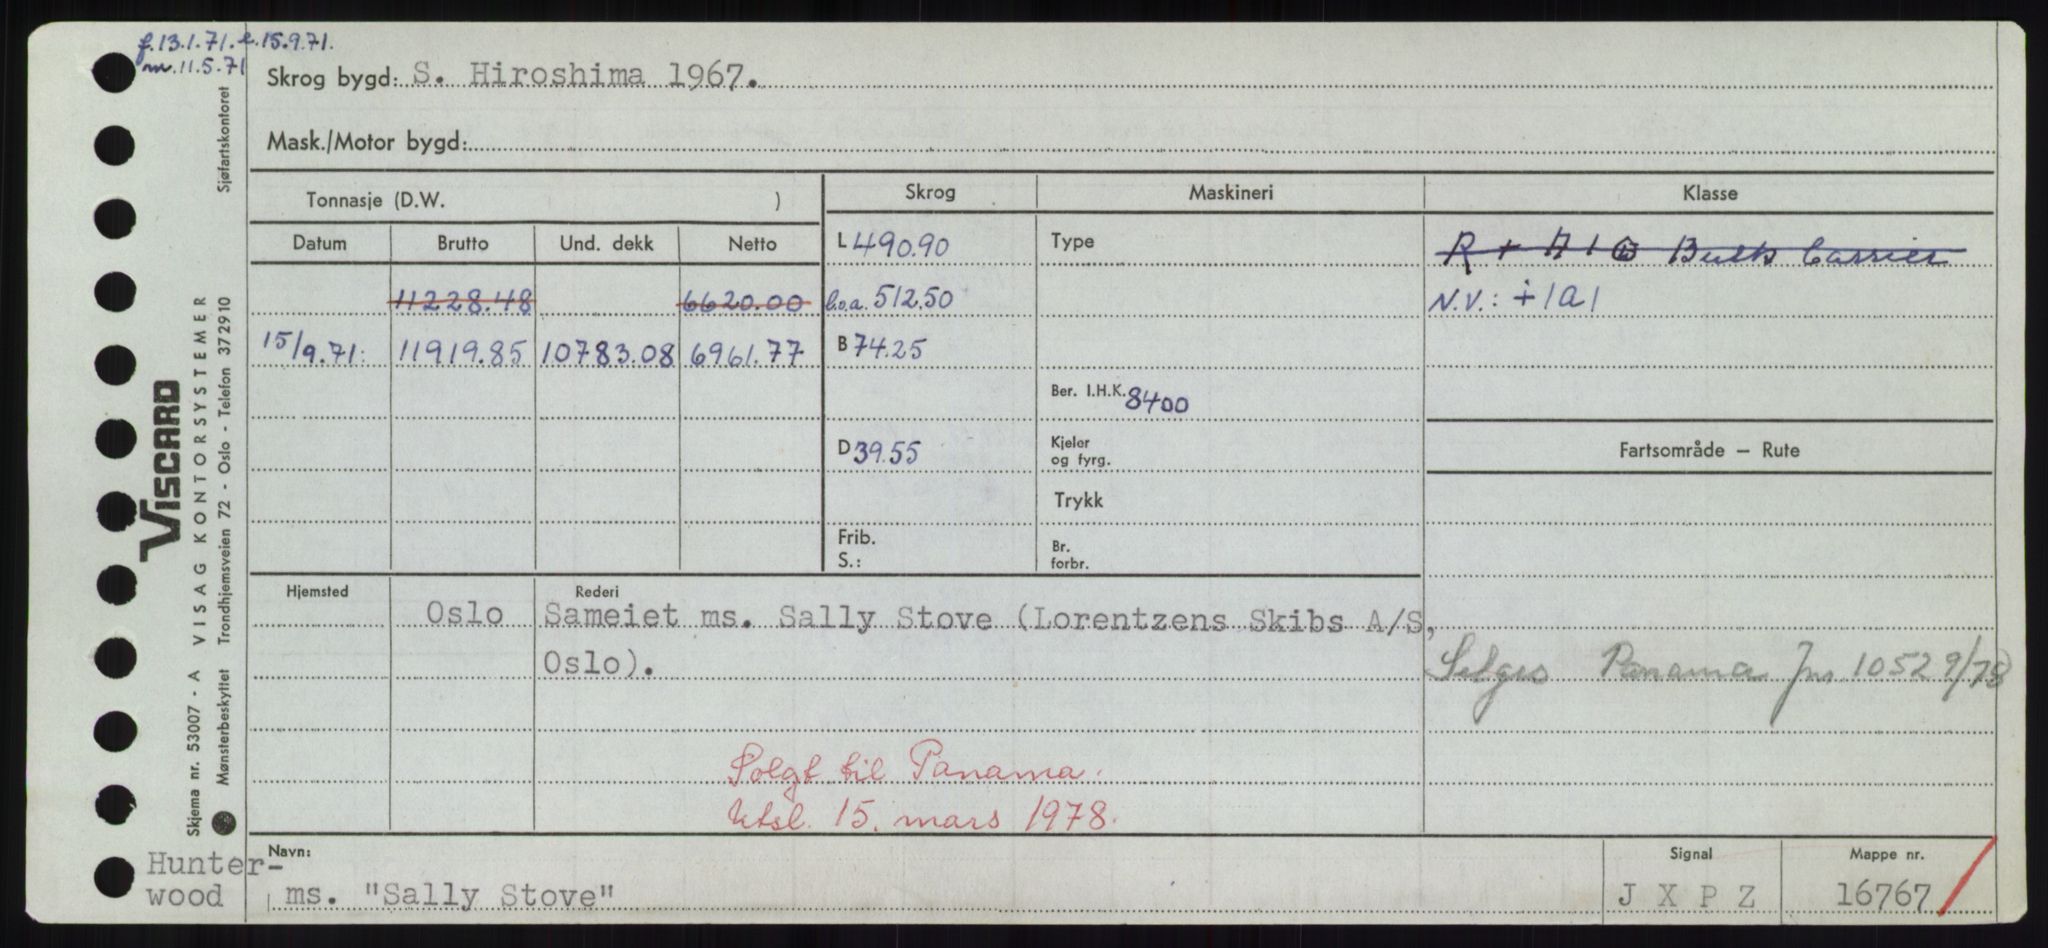 f. 13.1.71. e. 15.9.71.
m. 11.5.71
Skrog bygd: S. Hiroshima 1967.
Mask./Motor bygd:
Tonnasje (D.W. )
Skrog
Maskineri
Klasse
Datum
Brutto
Und. dekk
Netto
L 490.90
Type
R + A 1 Bulk Carrier
11228.48
6620.00
l.o.a. 512.50
N.V.: +1A1
15/9.71:
11919.85
10783.08
6961.77
B 74.25
Ber. I.H.K. 8400
D 39.55
Kjeler
og fyrg.
Fartsområde – Rute
Trykk
Frib.
S.:
Br.
forbr.
Hjemsted
Rederi
Oslo
Sameiet ms. Sally Stove (Lorentzens Skibs A/S,
Oslo).
Selges Panama Jnr. 1052 9/78
Solgt til Panama.
Utsl. 15. mars 1978.
Navn:
ms. "Sally Stove"
Signal
J X P Z
Mappe nr.
16767
Hunter-
wood
VISCARD
Skjema nr. 53007 - A VISAG KONTORSYSTEMER
Mønsterbeskyttet Trondhjemsveien 72 - Oslo - Telefon 372910 Sjøfartskontoret